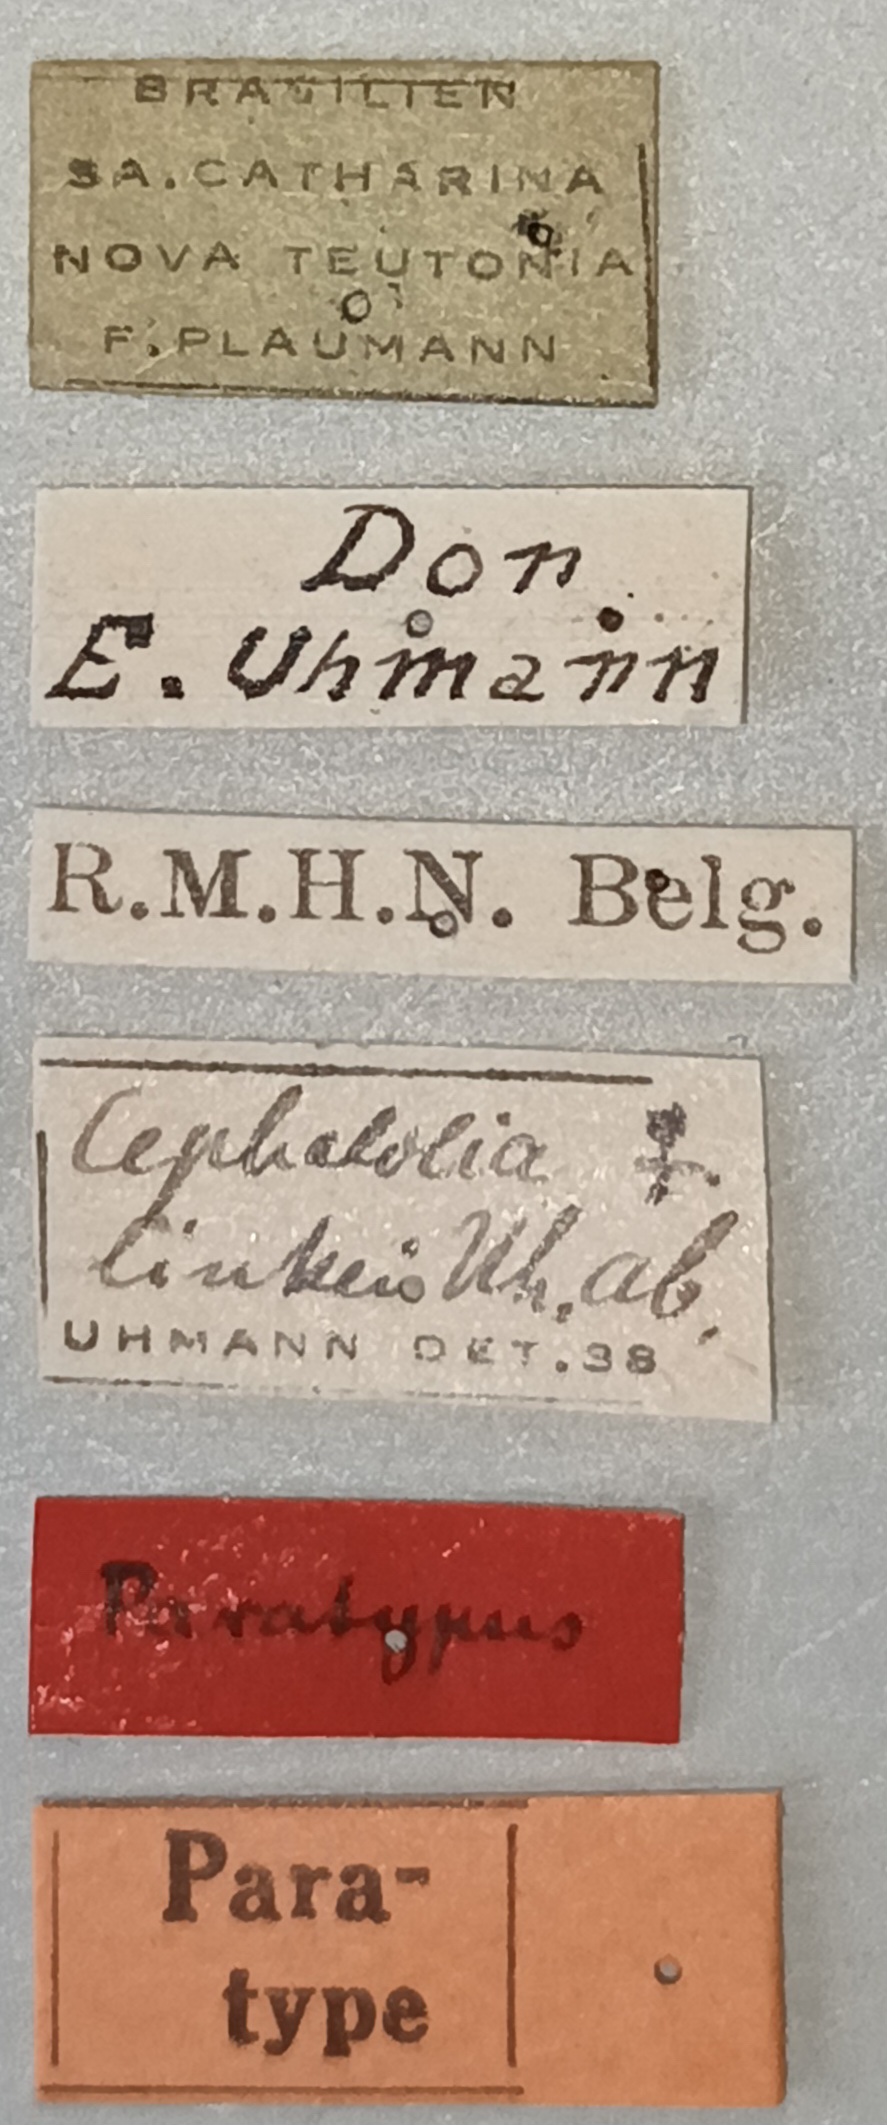 BRASILIEN
SA.CATHARINA
NOVA TEUTONIA
F.PLAUMANN
Don.
E. Uhmann
R.M.H.N. Belg.
Cephalolia ♀
linkei Uh. ab.
UHMANN DET.38
Paratypus
Para-
type